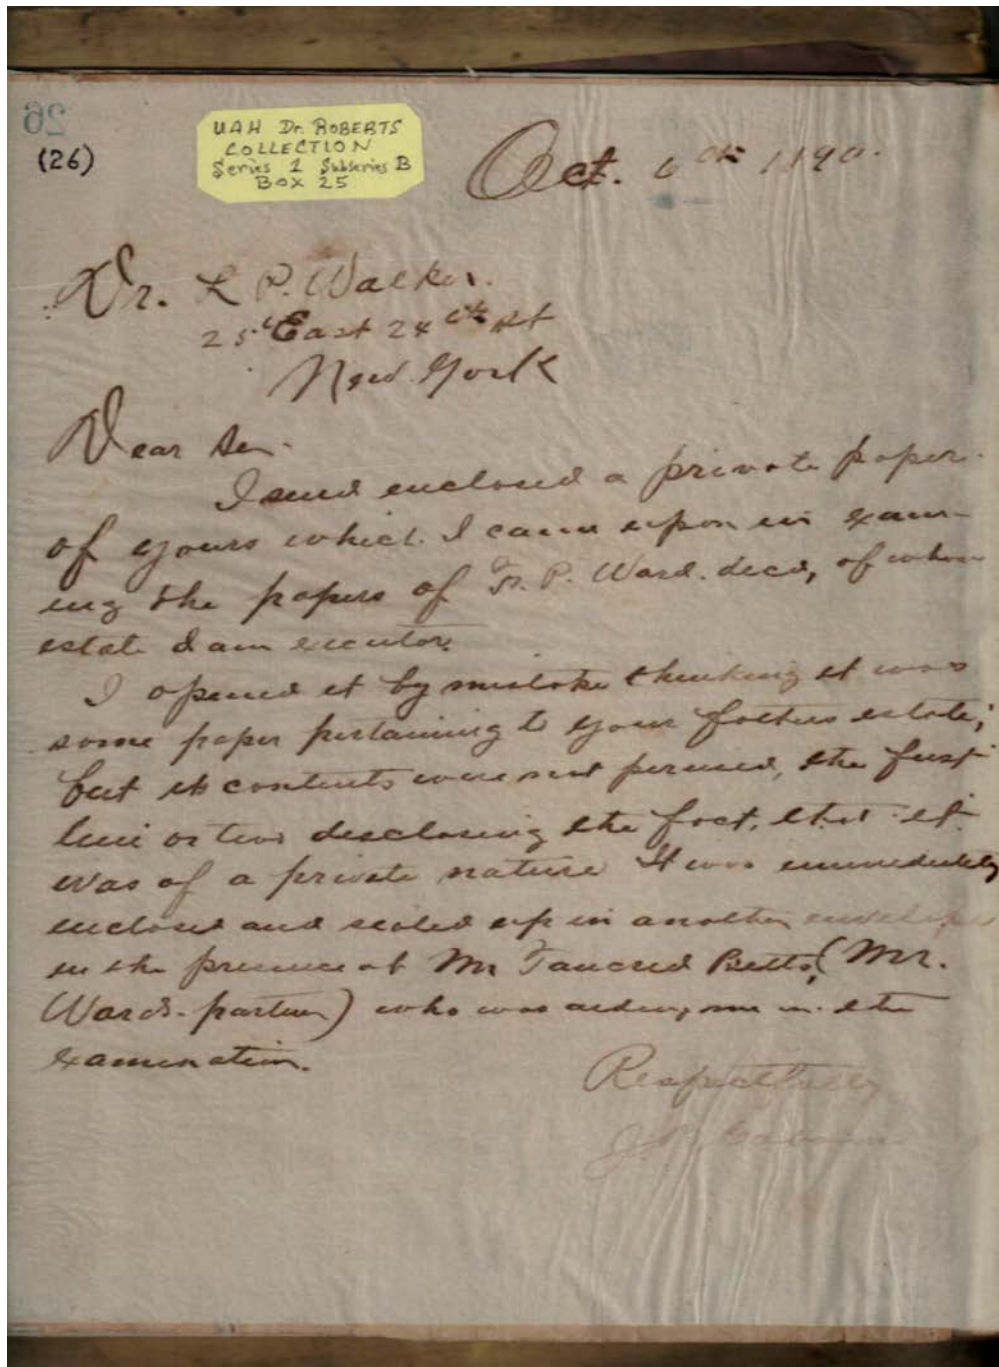 26
(26)
UAH Dr. ROBERTS
COLLECTION
Series 1 Subseries B
BOX 25
Oct. 6th 1890.
Dr. L P. Walker.
25 East 24th St
New York
Dear Sir.
I send enclosed a private paper
of yours which I came upon in exam-
ing the papers of P. Ward. decd, of whose
estate I am executor.
I opened it by mistake thinking it was
some paper pertaining to your fathers estate;
but its contents were not perused, the first
line or two disclosing the fact, that it
was of a private nature It was immediately
enclosed and sealed up in another envelope
in the presence of Mr Tancred Betts, (Mr.
Wards partner) who was aiding me in the
examination.
Respectfully